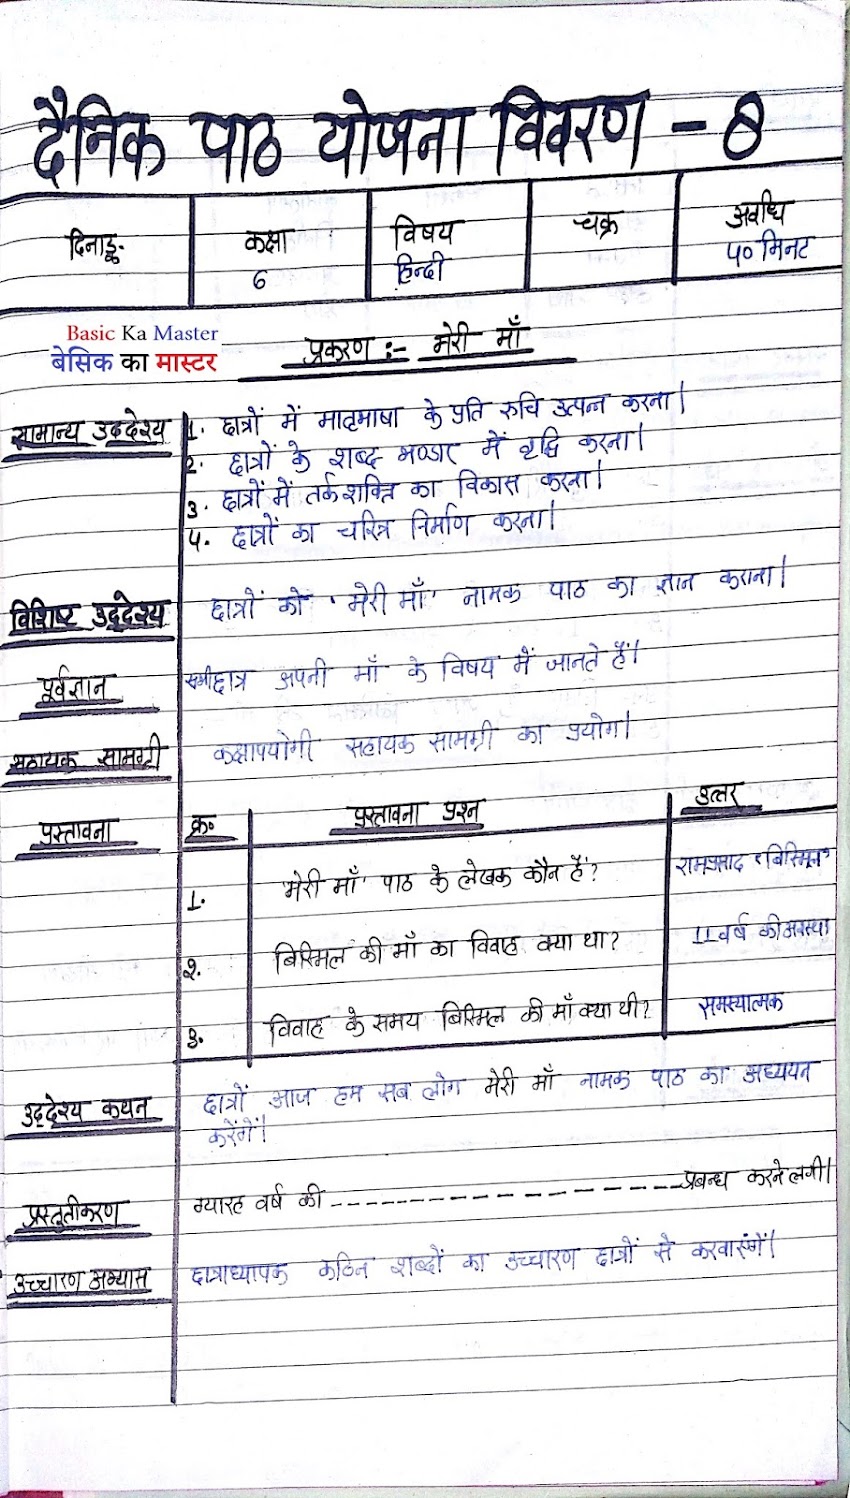 दैनिक पाठ योजना विवरण - 8
दिनाङ्क
कक्षा
6
विषय
हिन्दी
चक्र
अवधि
५० मिनट
Basic Ka Master
बेसिक का मास्टर
प्रकरण :- मेरी माँ
सामान्य उद्देश्य
1. छात्रों में मातृभाषा के प्रति रुचि उत्पन्न करना।
2. छात्रों के शब्द भण्डार में वृद्धि करना।
3. छात्रों में तर्कशक्ति का विकास करना।
4. छात्रों का चरित्र निर्माण करना।
विशिष्ट उद्देश्य
छात्रों को 'मेरी माँ' नामक पाठ का ज्ञान कराना।
पूर्वज्ञान
सभी छात्र अपनी माँ के विषय में जानते हैं।
सहायक सामग्री
कक्षापयोगी सहायक सामग्री का प्रयोग।
प्रस्तावना
क्र०
प्रस्तावना प्रश्न
उत्तर
1.
'मेरी माँ' पाठ के लेखक कौन हैं?
रामप्रसाद 'बिस्मिल'
2.
बिस्मिल की माँ का विवाह क्या था?
11 वर्ष की अवस्था
3.
विवाह के समय बिस्मिल की माँ क्या थी?
समस्यात्मक
उद्देश्य कथन
छात्रों आज हम सब लोग मेरी माँ नामक पाठ का अध्ययन
करेंगें।
प्रस्तुतीकरण
ग्यारह वर्ष की -------------------- प्रबन्ध करने लगी।
उच्चारण अभ्यास
छात्राध्यापक कठिन शब्दों का उच्चारण छात्रों से करवाएंगें।